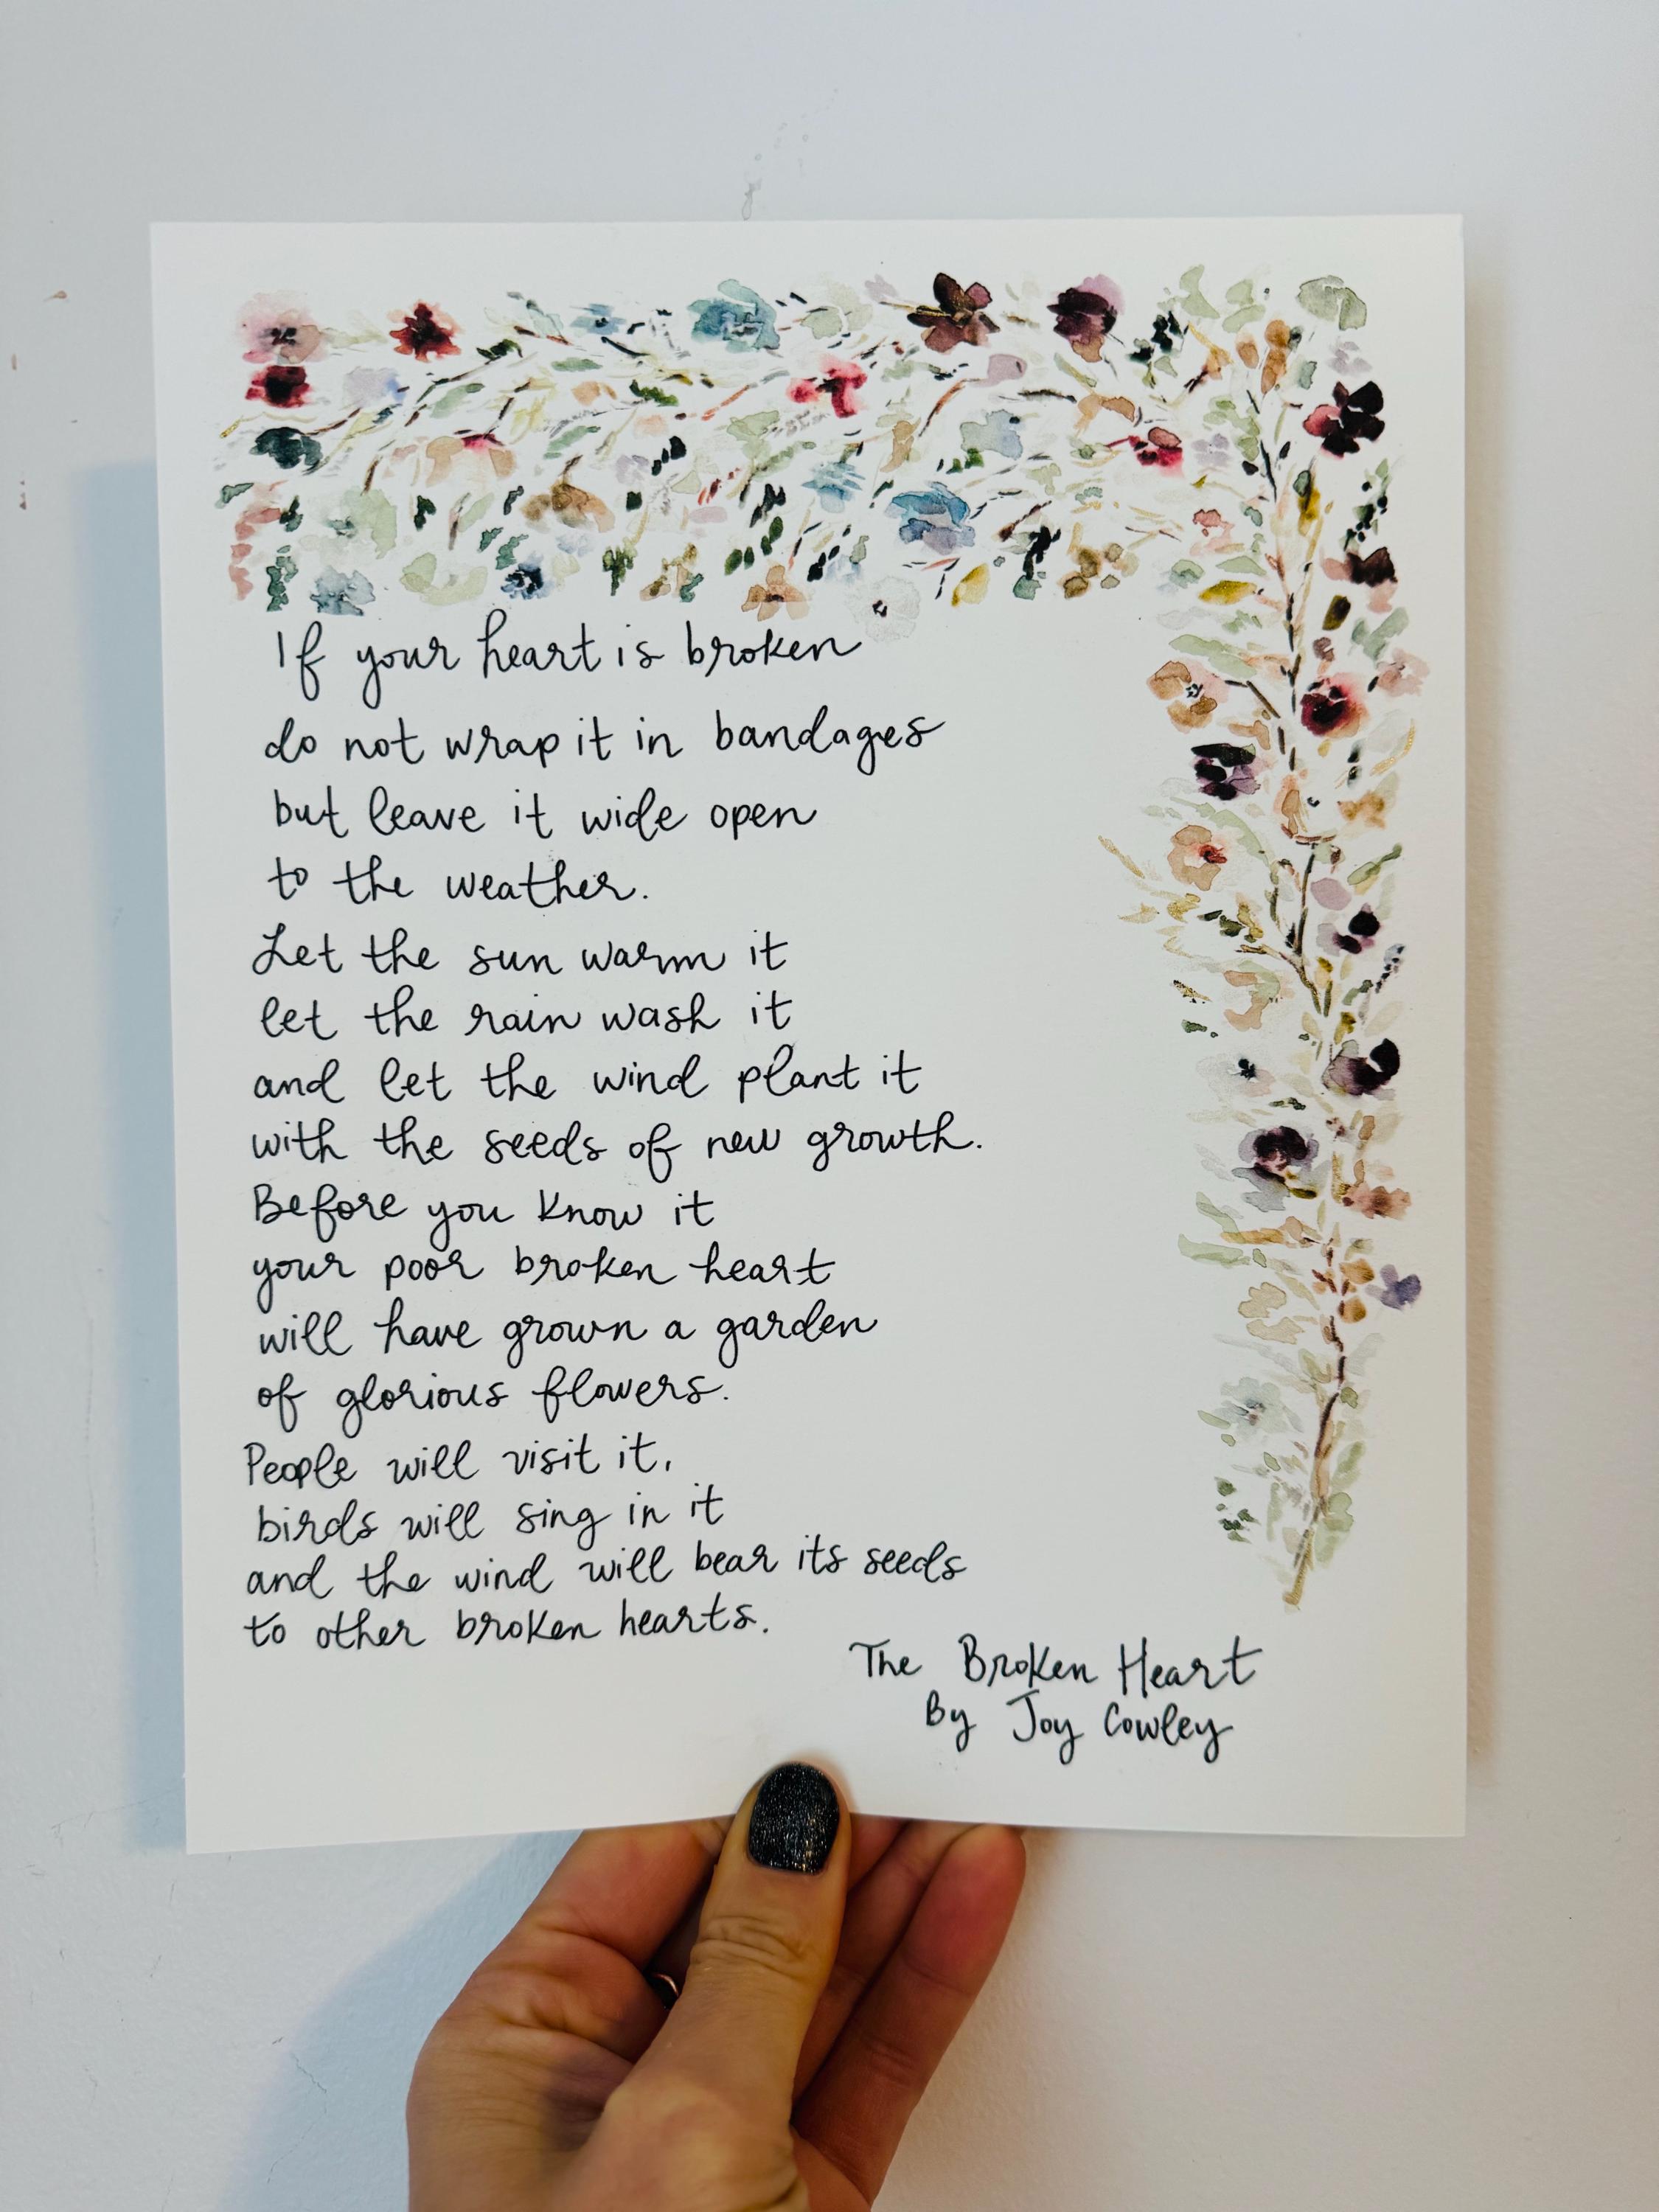 If your heart is broken
do not wrap it in bandages
but leave it wide open
to the weather.
Let the sun warm it
let the rain wash it
and let the wind plant it
with the seeds of new growth.
Before you know it
your poor broken heart
will have grown a garden
of glorious flowers.
People will visit it,
birds will sing in it
and the wind will bear its seeds
to other broken hearts.
The Broken Heart
By Joy Cowley